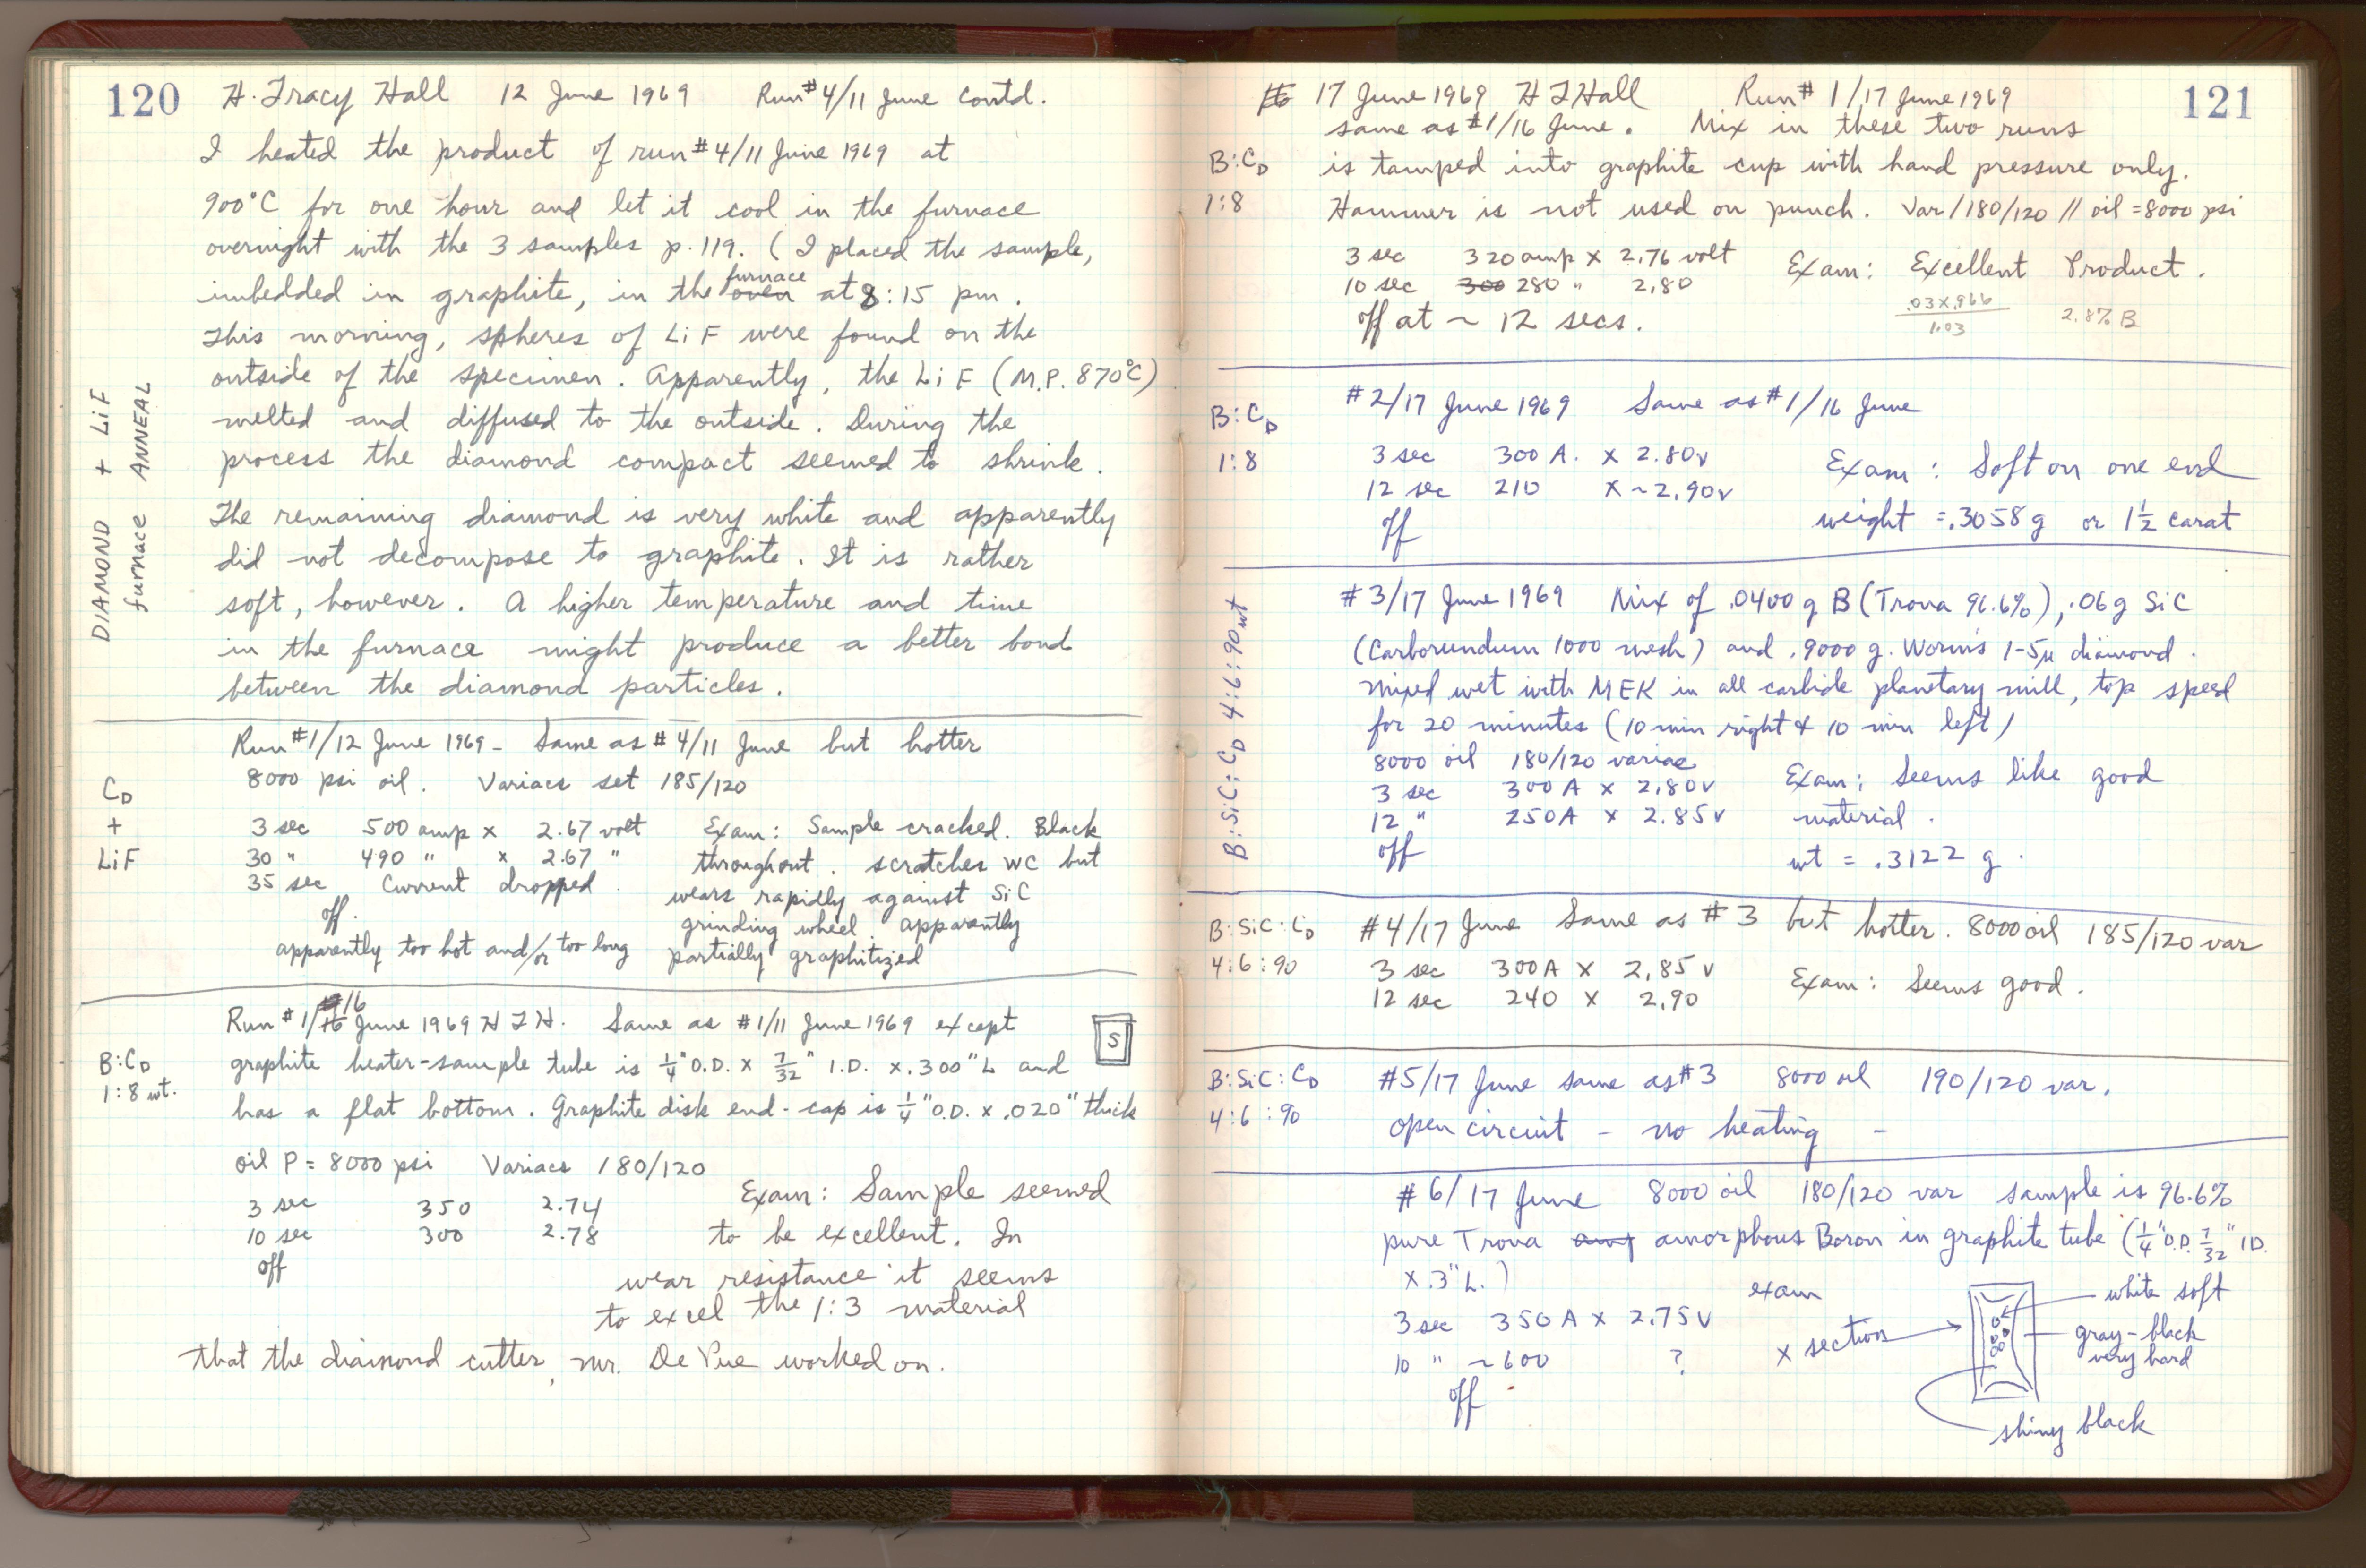 120 H. Tracy Hall 12 June 1969 Run #4/11 June Contd.
I heated the product of run #4/11 June 1969 at
900°C for one hour and let it cool in the furnace
overnight with the 3 samples p. 119. (I placed the sample,
imbedded in graphite, in the oven furnace at 8:15 pm.
This morning, spheres of LiF were found on the
outside of the specimen. Apparently, the LiF (M.P. 870°C)
melted and diffused to the outside. During the
process the diamond compact seemed to shrink.
The remaining diamond is very white and apparently
did not decompose to graphite. It is rather
soft, however. A higher temperature and time
in the furnace might produce a better bond
between the diamond particles.
DIAMOND + LiF
furnace ANNEAL
Run #1/12 June 1969 - Same as #4/11 June but hotter
8000 psi oil. Variacs set 185/120
CD
+
LiF
3 sec 500 amp x 2.67 volt
30 " 490 " x 2.67 "
35 sec Current dropped
off.
apparently too hot and/or too long
Exam: Sample cracked. Black
throughout. scratches WC but
wears rapidly against SiC
grinding wheel. apparently
partially graphitized
Run #1/16 June 1969 HTH. Same as #1/11 June 1969 except
B:CD
1:8 wt.
graphite heater-sample tube is 1/4" O.D. x 7/32" I.D. x .300" L and
S
has a flat bottom. Graphite disk end-cap is 1/4" O.D. x .020" thick
oil P = 8000 psi Variacs 180/120
3 sec 350 2.74
10 sec 300 2.78
off
Exam: Sample seemed
to be excellent. In
wear resistance it seems
to excel the 1:3 material
that the diamond cutter, mr. De Pue worked on.
17 June 1969 H T Hall Run # 1/17 June 1969 121
same as #1/16 June. Mix in these two runs
B:CD
1:8
is tamped into graphite cup with hand pressure only.
Hammer is not used on punch. Var/180/120 // oil = 8000 psi
3 sec 320 amp x 2.76 volt
10 sec 300 280 " 2.80
off at ~ 12 secs.
Exam: Excellent Product.
.03 x .966
1.03
2.8% B
#2/17 June 1969 Same as #1/16 June
B:CD
1:8
3 sec 300 A. x 2.80v
12 sec 210 x ~2.90v
off
Exam: Soft on one end
weight = .3058 g or 1 1/2 carat
#3/17 June 1969 Mix of .0400 g B (Trona 96.6%), .06 g SiC
(Carborundum 1000 mesh) and .9000 g. Worm's 1-5µ diamond.
mixed wet with MEK in all carbide planetary mill, top speed
for 20 minutes (10 min right & 10 min left)
B:SiC:CD 4:6:90 wt
8000 oil 180/120 variac
3 sec 300 A x 2.80v
12 " 250A x 2.85v
off
Exam: Seems like good
material.
wt = .3122 g.
B:SiC:CD
4:6:90
#4/17 June Same as #3 but hotter. 8000 oil 185/120 var
3 sec 300A x 2.85 v
12 sec 240 x 2.90
Exam: Seems good.
B:SiC:CD
4:6:90
#5/17 June same as #3 8000 oil 190/120 var.
open circuit - no heating -
#6/17 June 8000 oil 180/120 var sample is 96.6%
pure Trona amorphous Boron in graphite tube (1/4" O.D. 7/32" ID.
x .3" L.)
3 sec 350 A x 2.75V
10 " ~600 ?
off
exam
x section
white soft
gray-black
very hard
shiny black